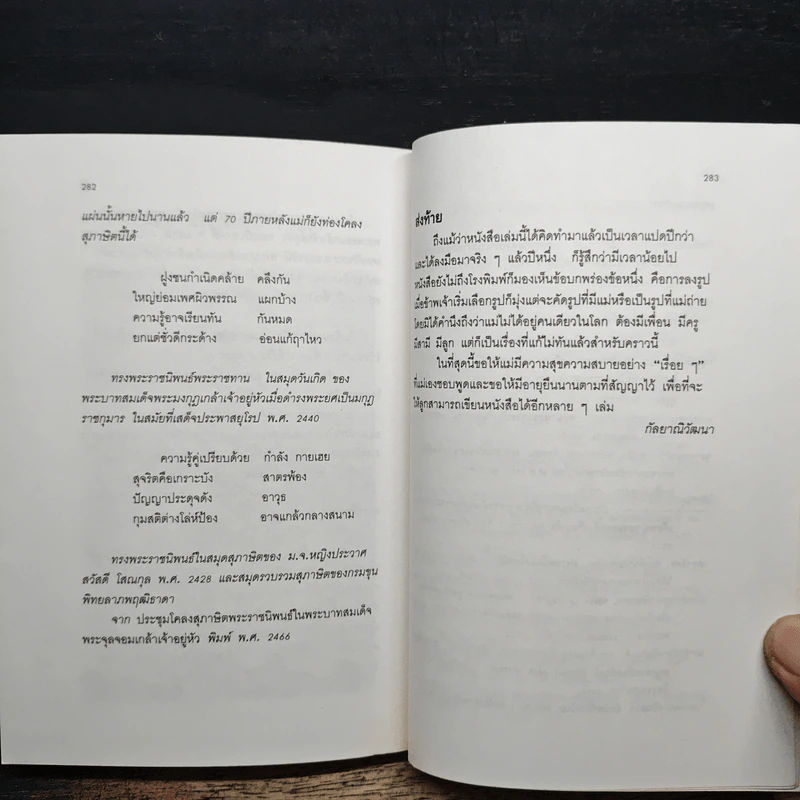 282
แผ่นนั้นหายไปนานแล้ว แต่ 70 ปีภายหลังแม่ก็ยังท่องโคลง
สุภาษิตนี้ได้
ฝูงชนกำเนิดคล้าย คลึงกัน
ใหญ่ย่อมเพศผิวพรรณ แผกบ้าง
ความรู้อาจเรียนทัน กันหมด
ยกแต่ชั่วดีกระด้าง อ่อนแก้ฤาไหว
ทรงพระราชนิพนธ์พระราชทาน ในสมุดวันเกิด ของ
พระบาทสมเด็จพระมงกุฎเกล้าเจ้าอยู่หัวเมื่อดำรงพระยศเป็นมกุฎ
ราชกุมาร ในสมัยที่เสด็จประพาสยุโรป พ.ศ. 2440
ความรู้คู่เปรียบด้วย กำลัง กายเฮย
สุจริตคือเกราะบัง สาตรพ้อง
ปัญญาประดุจดัง อาวุธ
กุมสติต่างโล่ห์ป้อง อาจแกล้วกลางสนาม
ทรงพระราชนิพนธ์ในสมุดสุภาษิตของ ม.จ.หญิงประวาศ
สวัสดี โสณกุล พ.ศ. 2428 และสมุดรวบรวมสุภาษิตของกรมขุน
พิทยลาภพฤฒิธาดา
จาก ประชุมโคลงสุภาษิตพระราชนิพนธ์ในพระบาทสมเด็จ
พระจุลจอมเกล้าเจ้าอยู่หัว พิมพ์ พ.ศ. 2466
283
ส่งท้าย
ถึงแม้ว่าหนังสือเล่มนี้ได้คิดทำมาแล้วเป็นเวลาแปดปีกว่า
และได้ลงมือมาจริง ๆ แล้วปีหนึ่ง ก็รู้สึกว่ามีเวลาน้อยไป
หนังสือยังไม่ถึงโรงพิมพ์ก็มองเห็นข้อบกพร่องข้อหนึ่ง คือการลงรูป
เมื่อข้าพเจ้าเริ่มเลือกรูปก็มุ่งแต่จะคัดรูปที่มีแม่หรือเป็นรูปที่แม่ถ่าย
โดยมิได้คำนึงถึงว่าแม่ไม่ได้อยู่คนเดียวในโลก ต้องมีเพื่อน มีครู
มีสามี มีลูก แต่ก็เป็นเรื่องที่แก้ไม่ทันแล้วสำหรับคราวนี้
ในที่สุดนี้ขอให้แม่มีความสุขความสบายอย่าง “เรื่อย ๆ”
ที่แม่เองชอบพูดและขอให้มีอายุยืนนานตามที่สัญญาไว้ เพื่อที่จะ
ให้ลูกสามารถเขียนหนังสือได้อีกหลาย ๆ เล่ม
กัลยาณิวัฒนา